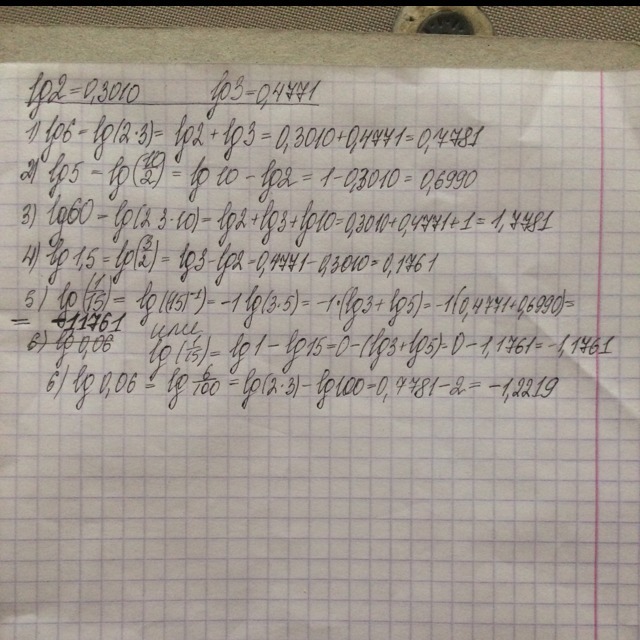 lg2=0,3010   lg3=0,4771
1) lg6 = lg(2·3)= lg2 + lg3 = 0,3010+0,4771=0,7781
2) lg5 = lg(10/2) = lg 10 - lg2 = 1-0,3010 = 0,6990
3) lg60 = lg(2·3·10)= lg2+lg3+lg10=0,3010+0,4771+1=1,7781
4) lg 1,5 = lg(3/2) = lg3-lg2=0,4771-0,3010=0,1761
5) lg(1/15)= lg(15)^-1)=-1 lg(3·5)=-1·(lg3+lg5)=-1(0,4771+0,6990)=
= -1,1761 или
6) lg 0,06 lg(1/15)= lg1-lg15=0-(lg3+lg5)=0-1,1761=-1,1761
6) lg 0,06 = lg 6/100 = lg(2·3)-lg100=0,7781-2=-1,2219